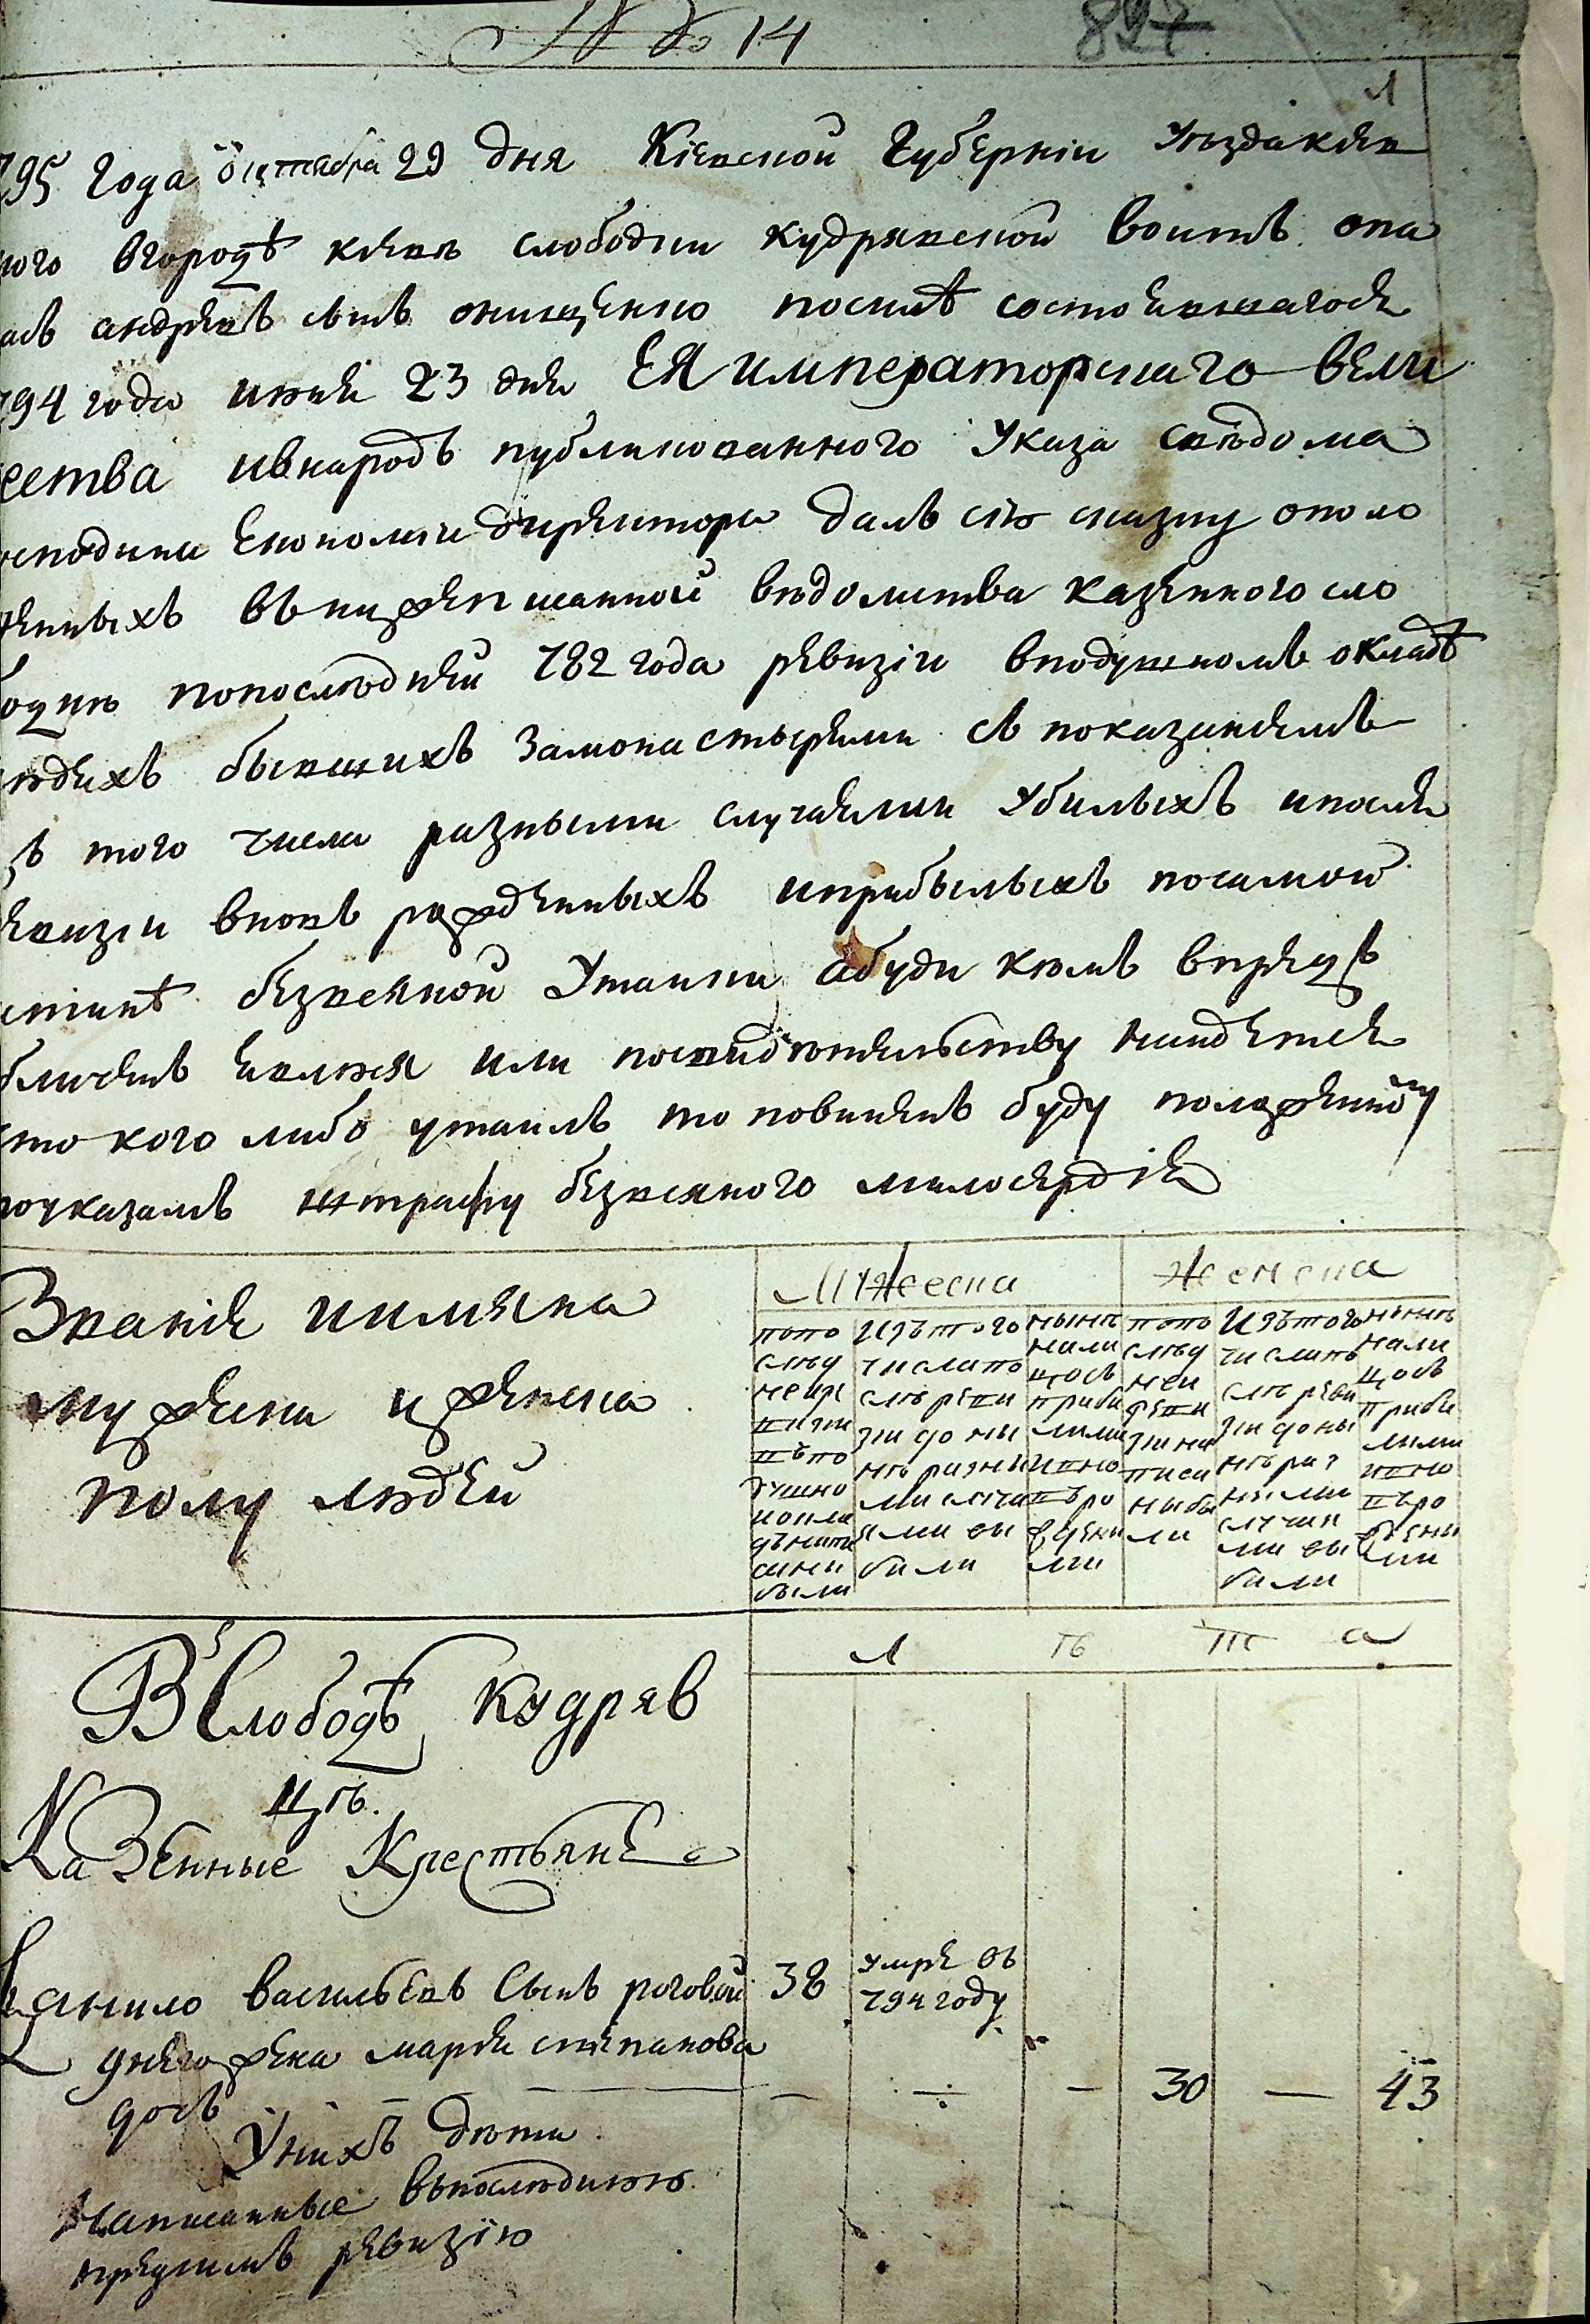 № 14
897
1
795 года октября 29 дня Кіевской Губерніи уѣзда кіев
ного вгородѣ кіевѣ слободки кудрявской воитъ опа
насъ андреевъ сынъ онищенко посилѣ состоявшагося
794 года июня 23 дня ЕЯ императорскаго вели
чества ивнародъ публикованного Указа свѣдома
господина економии директора далъ сію сказку около
женныхъ вънижеписанной вѣдомства казенного сло
бодки попослѣдней 782 года ревизіи вподушномъ окладѣ
людехъ бывшихъ замонастырями съ показаниемъ
изъ того числа разными случаями убилыхъ ипосле
ревизіи вновь рожденныхъ иприбылыхъ посамой
истинѣ безвсякой утаики абуди кѣмъ впредь
обличенъ явлюся или посвидѣтельству найдется
что кого либо утаилъ то повиненъ буду положенному
поуказамъ штрафу безвсякого милосердія
Звание иимяна
мужеска иженска
полу людей
Мужеска Женска
попо слѣд ней ре визии въпо душно мокла дѣнапи саны были
изътого числапо слѣ реви зии доны нѣ разны ми случа ями вы были
нынѣ нали цось прибы лыми ивно въро ждены ми
попо слѣд ней реви зиина писа ныбы ли
Изътого числапо слѣ реви зии доны нѣ раз ными случая ми вы были
нынѣ нали цось прибы лыми ивно въро ждены ми
л ѣ т а
Въ Слободѣ кудряв
цѣ.
Казенные Крестьяне
Данило васильевъ сынъ роговый 38 умре въ 794 году
унего жена марія степанова
дочь — ÷ — 30 — 43
Унихъ дѣти
написанные въпослѣднюю
предъ симъ ревизію